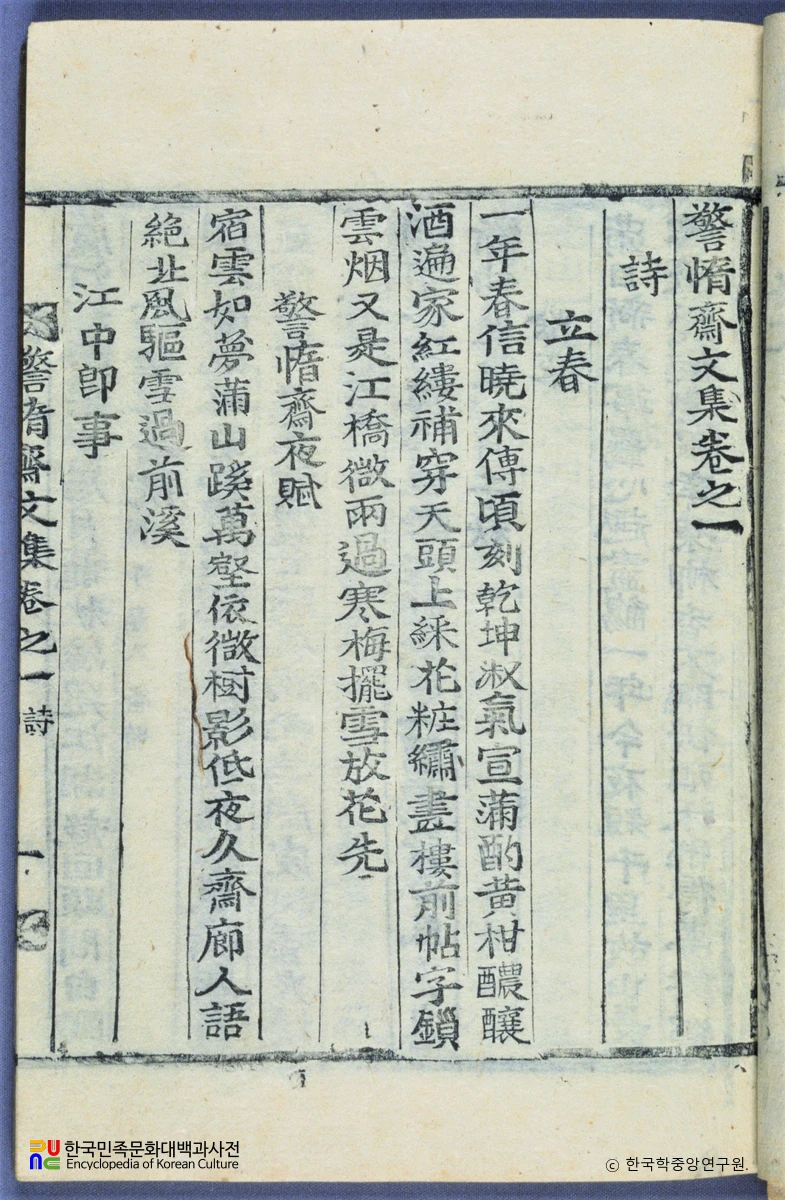 警惰齋文集卷之一
詩
立春
一年春信曉來傳頃刻乾坤淑氣宣滿酌黃柑醲釀
酒遍家紅縷補穿天頭上綵花粧繡畫樓前帖字鎖
雲烟又是江橋微雨過寒梅擺雪放花先
警惰齋夜賦
宿雲如夢滿山蹊萬壑依微樹影低夜久齋廊人語
絶北風驅雪過前溪
江中卽事
警惰齋文集卷之一 詩 一
한국민족문화대백과사전
Encyclopedia of Korean Culture
ⓒ 한국학중앙연구원.